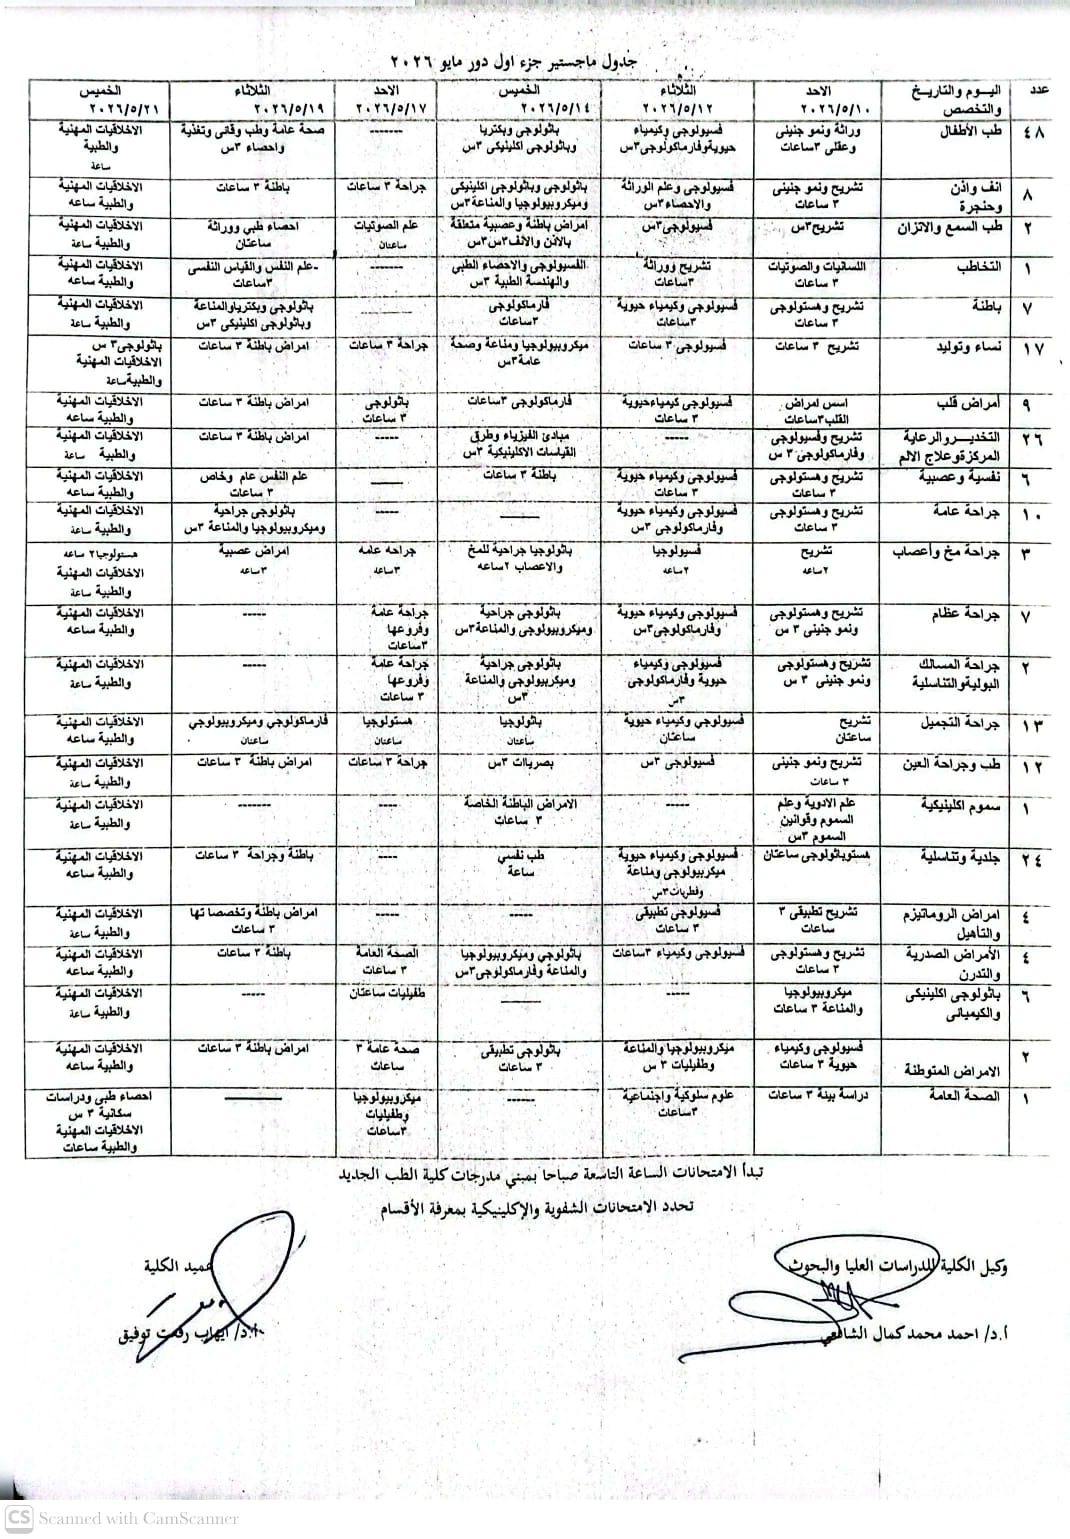 جدول ماجستير جزء اول دور مايو ٢٠٢٦
عدد | اليوم والتاريخ والتخصص | الاحد ٢٠٢٦/٥/١٠ | الثلاثاء ٢٠٢٦/٥/١٢ | الخميس ٢٠٢٦/٥/١٤ | الاحد ٢٠٢٦/٥/١٧ | الثلاثاء ٢٠٢٦/٥/١٩ | الخميس ٢٠٢٦/٥/٢١
٤٨ | طب الأطفال | وراثة ونمو جنينى وعقلى ٣ساعات | فسيولوجى وكيمياء حيوية وفارماكولوجى ٣س | باثولوجى وبكتريا وباثولوجى اكلينيكى ٣س | ------- | صحة عامة وطب وقائى وتغذية واحصاء ٣س | الاخلاقيات المهنية والطبية ساعة
٨ | انف واذن وحنجرة | تشريح ونمو جنينى ٣ ساعات | فسيولوجى وعلم الوراثة والاحصاء ٣س | باثولوجى وباثولوجى اكلينيكى وميكروبيولوجيا والمناعة ٣س | جراحة ٣ ساعات | باطنة ٣ ساعات | الاخلاقيات المهنية والطبية ساعه
٢ | طب السمع والاتزان | تشريح ٣س | فسيولوجى ٣س | امراض باطنة وعصبية متعلقة بالاذن والانف ٣س ٣س | علم الصوتيات ساعتان | احصاء طبي ووراثة ساعتان | الاخلاقيات المهنية والطبية ساعة
١ | التخاطب | اللسانيات والصوتيات ٣ ساعات | تشريح ووراثة ٣ساعات | الفسيولوجى والاحصاء الطبى والهندسة الطبية ٣س | ------- | -علم النفس والقياس النفسى ٣ساعات | الاخلاقيات المهنية والطبية ساعه
٧ | باطنة | تشريح وهستولوجى ٣ ساعات | فسيولوجى وكيمياء حيوية ٣ساعات | فارماكولوجى ٣ساعات | ------- | باثولوجى وبكتريا والمناعة وباثولوجى اكلينيكى ٣س | الاخلاقيات المهنية والطبية ساعة
١٧ | نساء وتوليد | تشريح ٣ ساعات | فسيولوجى ٣ ساعات | ميكروبيولوجيا ومناعة وصحة عامة ٣س | جراحة ٣ ساعات | امراض باطنة ٣ ساعات | باثولوجى ٣ س الاخلاقيات المهنية والطبية ساعة
٩ | أمراض قلب | اسس امراض القلب ٣ساعات | فسيولوجى كيمياء حيوية ٣ ساعات | فارماكولوجى ٣ساعات | باثولوجى ٣ ساعات | امراض باطنة ٣ ساعات | الاخلاقيات المهنية والطبية ساعه
٢٦ | التخدير والرعاية المركزة وعلاج الالم | تشريح وفسيولوجى وفارماكولوجى ٣ س | ----- | مبادئ الفيزياء وطرق القياسات الاكلينيكية ٣س | ----- | امراض باطنة ٣ ساعات | الاخلاقيات المهنية والطبية ساعة
٦ | نفسية وعصبية | تشريح وهستولوجى ٣ ساعات | فسيولوجى وكيمياء حيوية ٣ ساعات | باطنة ٣ ساعات | ——— | علم النفس عام وخاص ٣ ساعات | الاخلاقيات المهنية والطبية ساعه
١٠ | جراحة عامة | تشريح وهستولوجى ٣ ساعات | فسيولوجى وكيمياء حيوية وفارماكولوجى ٣س | ——— | ----- | باثولوجى جراحية وميكروبيولوجيا والمناعة ٣س | الاخلاقيات المهنية والطبية ساعة
٣ | جراحة مخ وأعصاب | تشريح ٢ساعه | فسيولوجيا ٢ساعه | باثولوجيا جراحية للمخ والاعصاب ٢ساعه | جراحه عامه ٣ساعه | امراض عصبية ٣ساعه | هستولوجيا ٢ ساعه الاخلاقيات المهنية والطبية ساعة
٧ | جراحة عظام | تشريح وهستولوجى ونمو جنينى ٣ س | فسيولوجى وكيمياء حيوية وفارماكولوجى ٣س | باثولوجى جراحية وميكروبيولوجى والمناعة ٣س | جراحة عامة وفروعها ٣ساعات | ----- | الاخلاقيات المهنية والطبية ساعه
٢ | جراحة المسالك البولية والتناسلية | تشريح وهستولوجى ونمو جنينى ٣ س | فسيولوجى وكيمياء حيوية وفارماكولوجى ٣س | باثولوجى جراحية وميكربيولوجى والمناعة ٣س | جراحة عامة وفروعها ٣ ساعات | ----- | الاخلاقيات المهنية والطبية ساعة
١٣ | جراحة التجميل | تشريح ساعتان | فسيولوجي وكيمياء حيوية ساعتان | باثولوجيا ساعتان | هستولوجيا ساعتان | فارماكولوجي وميكروبيولوجي ساعتان | الاخلاقيات المهنية والطبية ساعه
١٢ | طب وجراحة العين | تشريح ونمو جنينى ٣ ساعات | فسيولوجى ٣س | بصريات ٣س | جراحة ٣ ساعات | امراض باطنة ٣ ساعات | الاخلاقيات المهنية والطبية ساعة
١ | سموم اكلينيكية | علم الادوية وعلم السموم وقوانين السموم ٣س | ----- | الامراض الباطنة الخاصة ٣ ساعات | ---- | ------- | الاخلاقيات المهنية والطبية ساعة
٢٤ | جلدية وتناسلية | هستوباثولوجى ساعتان | فسيولوجى وكيمياء حيوية ميكربيولوجى ومناعة وفطريات ٣س | طب نفسي ساعة | ---- | باطنة وجراحة ٣ ساعات | الاخلاقيات المهنية والطبية ساعه
٤ | امراض الروماتيزم والتأهيل | تشريح تطبيقى ٣ ساعات | فسيولوجى تطبيقى ٣ ساعات | ----- | ----- | امراض باطنة وتخصصاتها ٣ ساعات | الاخلاقيات المهنية والطبية ساعة
٤ | الأمراض الصدرية والتدرن | تشريح وهستولوجى ٣ ساعات | فسيولوجى وكيمياء ٣ساعات | باثولوجي وميكروبيولوجيا والمناعة وفارماكولوجى ٣س | الصحة العامة ٣ ساعات | باطنة ٣ ساعات | الاخلاقيات المهنية والطبية ساعه
٦ | باثولوجى اكلينيكى والكيميائى | ميكروبيولوجيا والمناعة ٣ ساعات | ----- | ——— | طفيليات ساعتان | ----- | الاخلاقيات المهنية والطبية ساعة
٢ | الامراض المتوطنة | فسيولوجى وكيمياء حيوية ٣ ساعات | ميكروبيولوجيا والمناعة وطفيليات ٣ س | باثولوجى تطبيقى ٣ ساعات | صحة عامة ٣ ساعات | امراض باطنة ٣ ساعات | الاخلاقيات المهنية والطبية ساعه
١ | الصحة العامة | دراسة بيئة ٣ ساعات | علوم سلوكية واجتماعية ٣ساعات | ------ | ميكروبيولوجيا وطفيليات ٣ساعات | ——— | احصاء طبى ودراسات سكانية ٣ س الاخلاقيات المهنية والطبية ساعات
تبدأ الامتحانات الساعة التاسعة صباحا بمبني مدرجات كلية الطب الجديد
تحدد الامتحانات الشفوية والإكلينيكية بمعرفة الأقسام
وكيل الكلية للدراسات العليا والبحوث
عميد الكلية
أ.د/ احمد محمد كمال الشافعي
أ.د/ ايهاب رفعت توفيق
CS Scanned with CamScanner